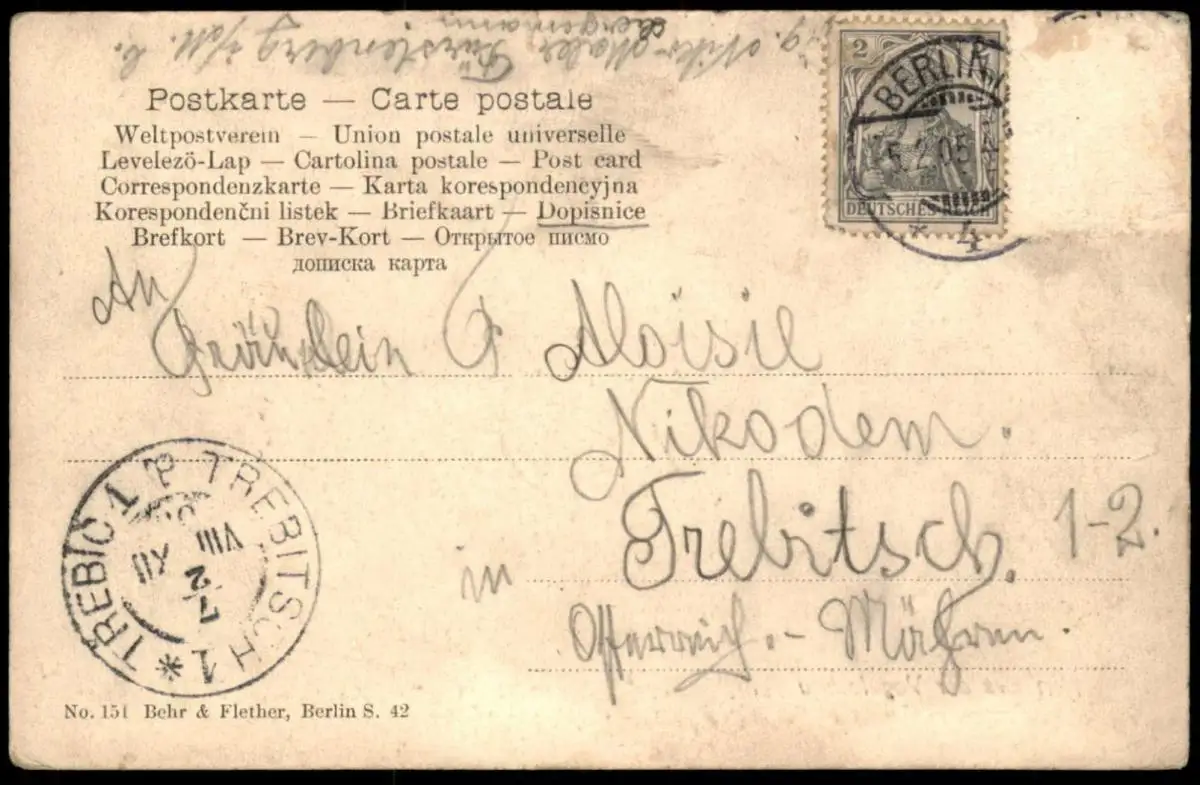 Postkarte — Carte postale
Weltpostverein — Union postale universelle
Levelezö-Lap — Cartolina postale — Post card
Correspondenzkarte — Karta korespondencyjna
Korespondenčni listek — Briefkaart — Dopisnice
Brefkort — Brev-Kort — Открытое письмо
дописка карта
2
DEUTSCHES REICH
BERLIN
2.05
* 4
An
Fräulein Aloisie
Nikodem.
in Trebitsch. 1-2.
Österreich.- Mähren.
TREBITSCH 1 * TŘEBIČ 1
VIII XII
7/2
No. 151 Behr & Flether, Berlin S. 42